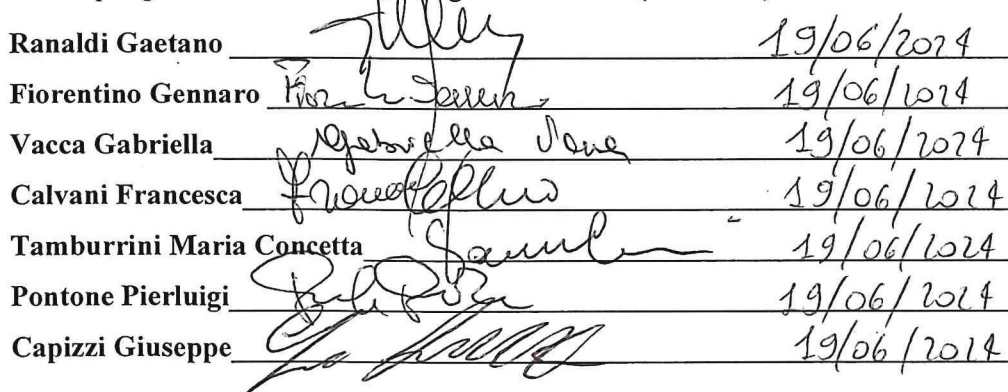 Ranaldi Gaetano 19/06/2024
Fiorentino Gennaro 19/06/2024
Vacca Gabriella Gabriella Vacca 19/06/2024
Calvani Francesca 19/06/2024
Tamburrini Maria Concetta 19/06/2024
Pontone Pierluigi 19/06/2024
Capizzi Giuseppe 19/06/2024